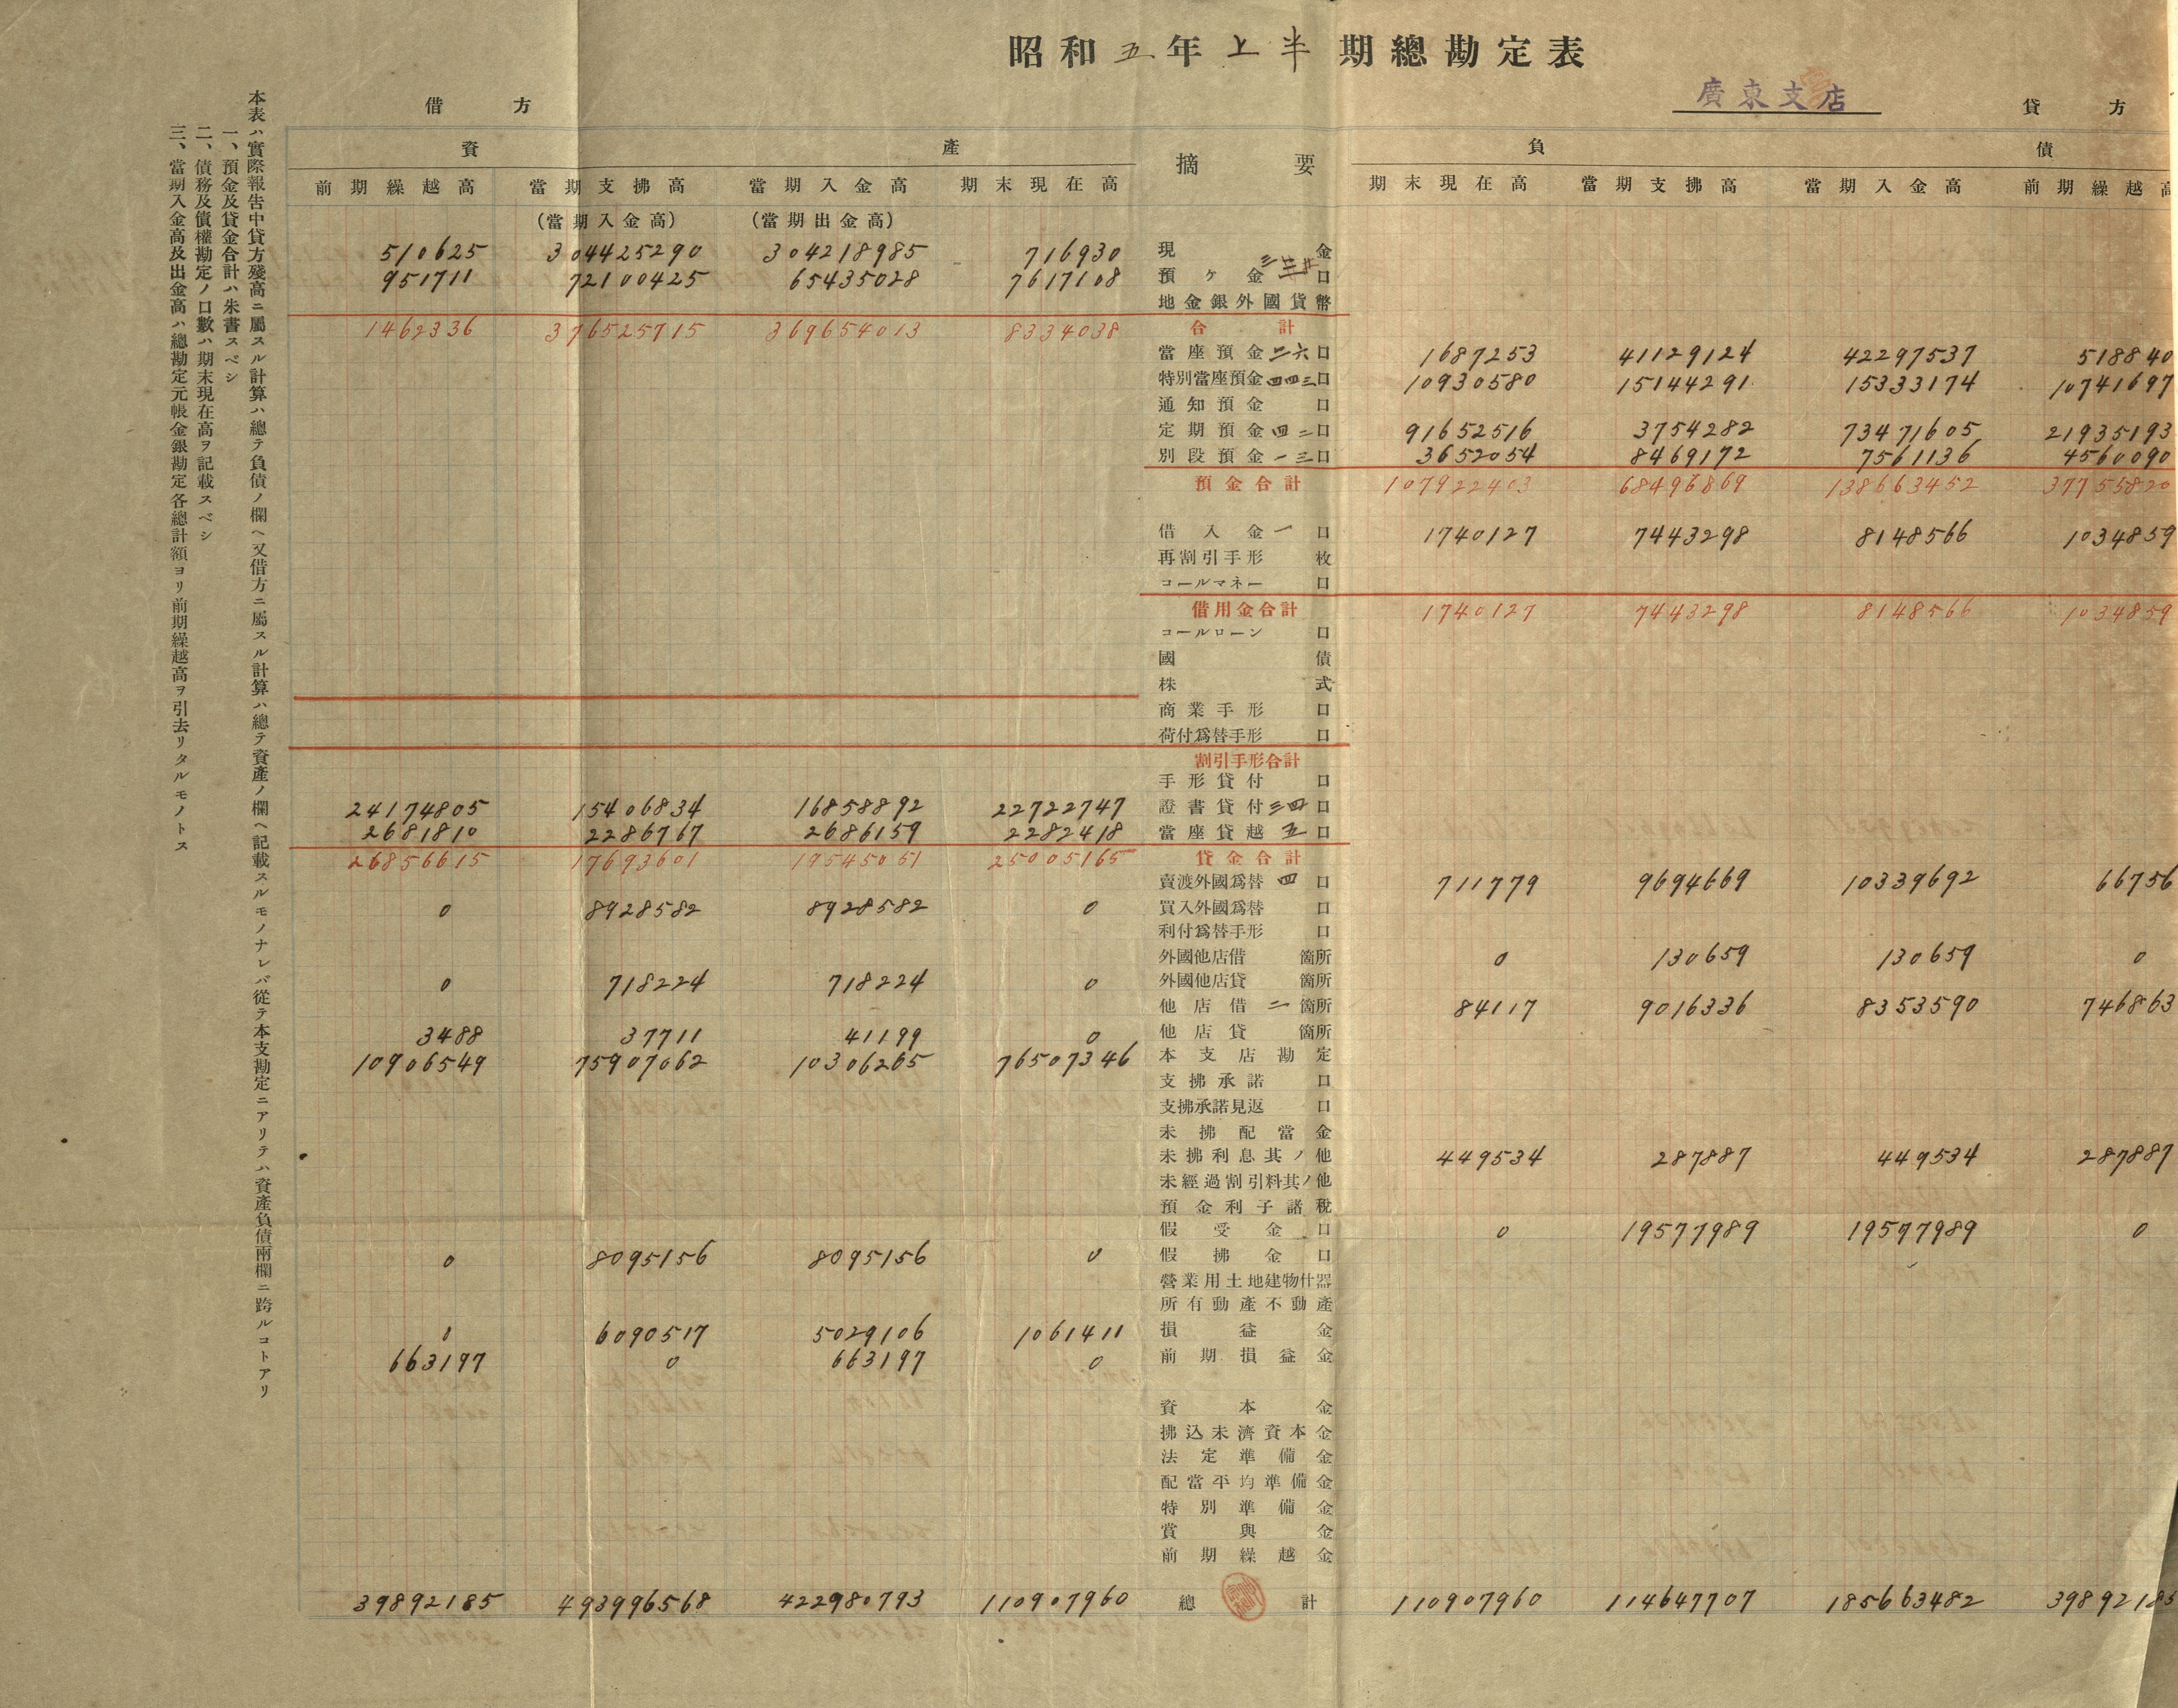 昭和五年上半期總勘定表
廣東支店
借方
貸方
資產
摘要
負債
前期繰越高 當期支拂高 當期入金高 期末現在高 期末現在高 當期支拂高 當期入金高 前期繰越高
(當期入金高) (當期出金高)
510625 304425290 304218985 716930 現金
951711 72100425 65435028 7617108 預ケ金 口
地金銀外國貨幣
1462336 376525715 369654013 8334038 合計
當座預金二六口 1687253 41129124 42297537 518840
特別當座預金四四三口 10930580 15144291 15333174 10741697
通知預金 口
定期預金四二口 91652516 3754282 73471605 21935193
別段預金一三口 3652054 8469172 7561136 4560090
預金合計 107922403 68496869 138663452 37755820
借入金一口 1740127 7443298 8148566 1034859
再割引手形 枚
コールマネー 口
借用金合計 1740127 7443298 8148566 1034859
コールローン 口
國債
株式
商業手形 口
荷付爲替手形 口
割引手形合計
手形貸付 口
24174805 15406834 16858892 22722747 證書貸付三四口
2681810 2286767 2686159 2282418 當座貸越五口
26856615 17693601 19545051 25005165 貸金合計
賣渡外國爲替四口 711779 9694669 10339692 66756
0 8928582 8928582 0 買入外國爲替 口
利付爲替手形 口
外國他店借 箇所 0 130659 130659 0
0 718224 718224 0 外國他店貸 箇所
他店借二箇所 84117 9016336 8353590 746863
3488 37711 41199 0 他店貸 箇所
10906549 75907062 10306265 76507346 本支店勘定
支拂承諾 口
支拂承諾見返 口
未拂配當金
未拂利息其ノ他 449534 287887 449534 287887
未經過割引料其ノ他
預金利子諸稅
假受金 口 0 19577989 19577989 0
0 8095156 8095156 0 假拂金 口
營業用土地建物什器
所有動產不動產
0 6090517 5029106 1061411 損益金
663197 0 663197 0 前期損益金
資本金
拂込未濟資本金
法定準備金
配當平均準備金
特別準備金
賞與金
前期繰越金
39892185 493996568 422980793 110907960 總計 110907960 114647707 185663482 39892185
本表ハ實際報告中貸方殘高ニ屬スル計算ハ總テ負債ノ欄ヘ又借方ニ屬スル計算ハ總テ資產ノ欄ヘ記載スルモノナレバ從テ本支勘定ニアリテハ資產負債兩欄ニ跨ルコトアリ
一、預金及貸金合計ハ朱書スベシ
二、債務及債權勘定ノ口數ハ期末現在高ヲ記載スベシ
三、當期入金高及出金高ハ總勘定元帳金銀勘定各總計額ヨリ前期繰越高ヲ引去リタルモノトス